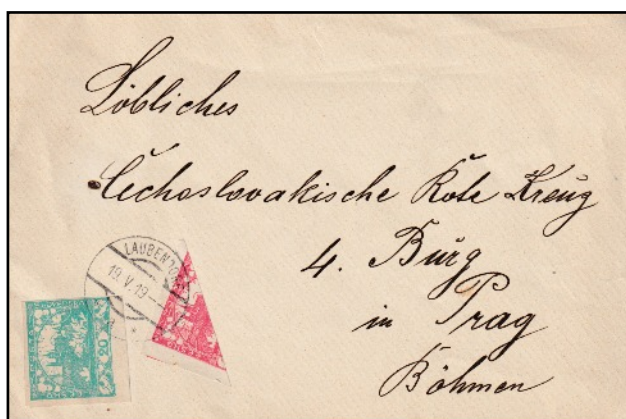 Löbliches
Čechoslovakische Rote Kreuz
4. Burg
in Prag
Böhmen
19.V.19
20